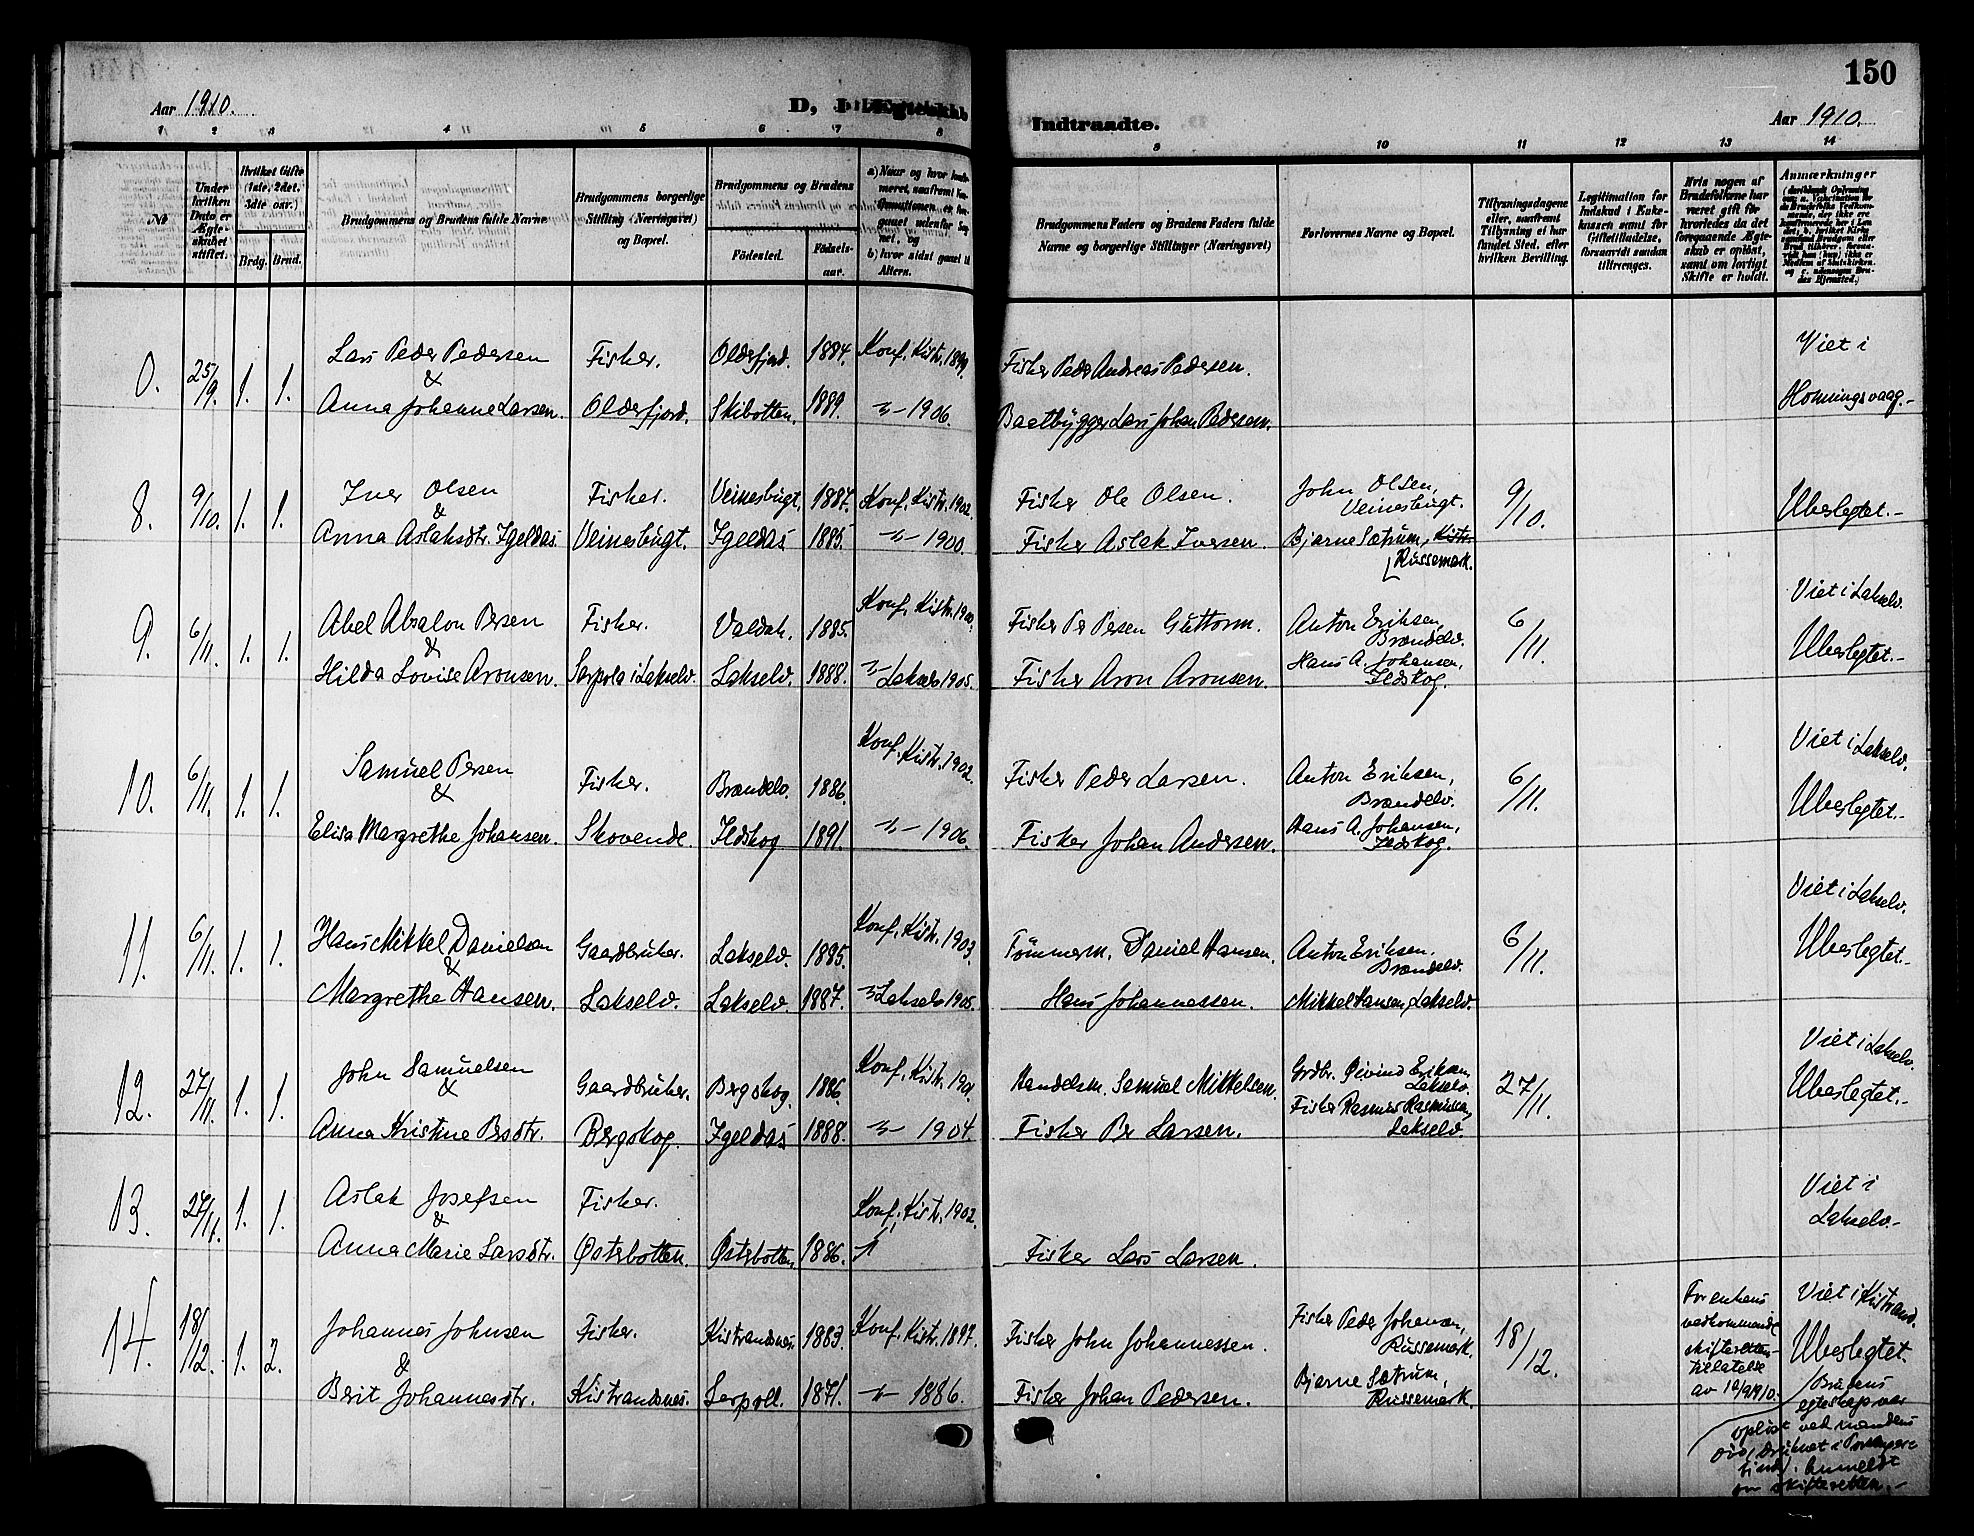 150
Aar 1910.
Indtraadte.
Aar 1910.
1 2 3 4 5 6 7 8 9 10 11 12 13 14
No
Under hvilken Dato er Ægteskabet stiftet.
Hvilket Gifte (1ste, 2det, 3die osv.)
Brdg. Brud.
Brudgommens og Brudens fulde Navne
Brudgommens borgerlige Stilling (Næringsvei) og Bopæl.
Brudgommens og Brudens
Födested. Födsels-aar.
b) hvor sidst gaaet til Alters.
Brudgommens Faders og Brudens Faders fulde Navne og borgerlige Stillinger (Næringsvei)
Forlovernes Navne og Bopæl.
Tillysningsdagene eller, saafremt Tillysning ei har fundet Sted, efter hvilken Bevilling.
Legitimation for Indskud i Enke-kassen samt for Giftetilladelse, forsaavidt saadan tiltrænges.
Hvis nogen af Brudefolkene har været gift før hvorledes da det foregaaende Ægte-skab er oplöst, samt om lovligt Skifte er holdt.
Anmærkninger
0. 25/9. 1. 1. Lars Peder Pedersen Fisker. Olderfjord. 1884. Konf. Kistr. 1899. Fisker Peder Andreas Pedersen. Viet i
&
Anna Johanne Larsen. Olderfjord. Skibotten. 1889. -"- 1906. Baatbygger Lars Johan Pedersen. Honningsvaag.-
8. 9/10. 1. 1. Iver Olsen Fisker. Veinesbugt. 1887. Konf. Kistr. 1902. Fisker Ole Olsen. John Olsen, Veinesbugt. 9/10. Ubeslegtet.-
&
Anna Aslaksdtr. Igeldas Veinesbugt. Igeldas 1885. -"- 1900. Fisker Aslak Iversen. Bjarne Sætrum, Kistr. Russemark.
9. 6/11. 1. 1. Abel Absalon Persen Fisker. Valdak. 1885. Konf. Kistr. 1900. Fisker Per Persen Guttorm. Anton Eriksen, Brændelv. 6/11. Viet i Lakselv.
&
Hilda Lovise Aronsen. Sarpola i Lakselv. Lakselv. 1888. -"- Lakselv 1905. Fisker Aron Aronsen. Hans A. Johansen, Ildskog. Ubeslegtet.-
10. 6/11. 1. 1. Samuel Persen Fisker. Brændelv. 1886. Konf. Kistr. 1902. Fisker Peder Larsen. Anton Eriksen, Brændelv. 6/11. Viet i Lakselv.
&
Elisa Margrethe Johansen. Skovende. Ildskog 1891. -"- 1906. Fisker Johan Andersen. Hans A. Johansen, Ildskog. Ubeslegtet.-
11. 6/11. 1. 1. Hans Mikkel Danielsen Gaardbruker. Lakselv. 1885. Konf. Kistr. 1903. Tømmerm. Daniel Hansen. Anton Eriksen, Brændelv. 6/11. Viet i Lakselv.
&
Margrethe Hansen. Lakselv. Lakselv. 1887. -"- Lakselv 1905. Hans Johannessen. Mikkel Hansen, Lakselv. Ubeslegtet.-
12. 27/11. 1. 1. John Samuelsen Gaardbruker. Bergskog. 1886. Konf. Kistr. 1901. Handelsm. Samuel Mikkelsen. Grdbr. Øivind Eriksen, Lakselv. 27/11. Viet i Lakselv.
&
Anna Kristine Persdtr. Bergskog. Igeldas 1888. -"- 1904. Fisker Per Larsen. Fisker Rasmus Rasmussen, Lakselv. Ubeslegtet.-
13. 27/11. 1. 1. Aslak Josefsen Fisker. Konf. Kistr. 1902. Viet i
&
Anna Marie Larsdtr. Østerbotten. Østerbotten. 1886. -"- Fisker Lars Larsen. Lakselv.-
14. 18/12. 1. 2. Johannes Johnsen Fisker. Kistrandsnes. 1883. Konf. Kistr. 1897. Fisker John Johannessen. Fisker Peder Johansen, Russemark. 18/12. For enkens vedkommende skifterettens tillatelse av 19/9 1910. Viet i Kistrand.
&
Berit Johannesdtr. Kistrandsnes. Serpoll. 1871. -"- 1886. Fisker Johan Pedersen. Bjarne Sætrum, Russemark. Ubeslegtet.
Brudens egteskap var opløst ved mandens død, druknet i Porsanger fjord. Anmeldt for skifteretten.-